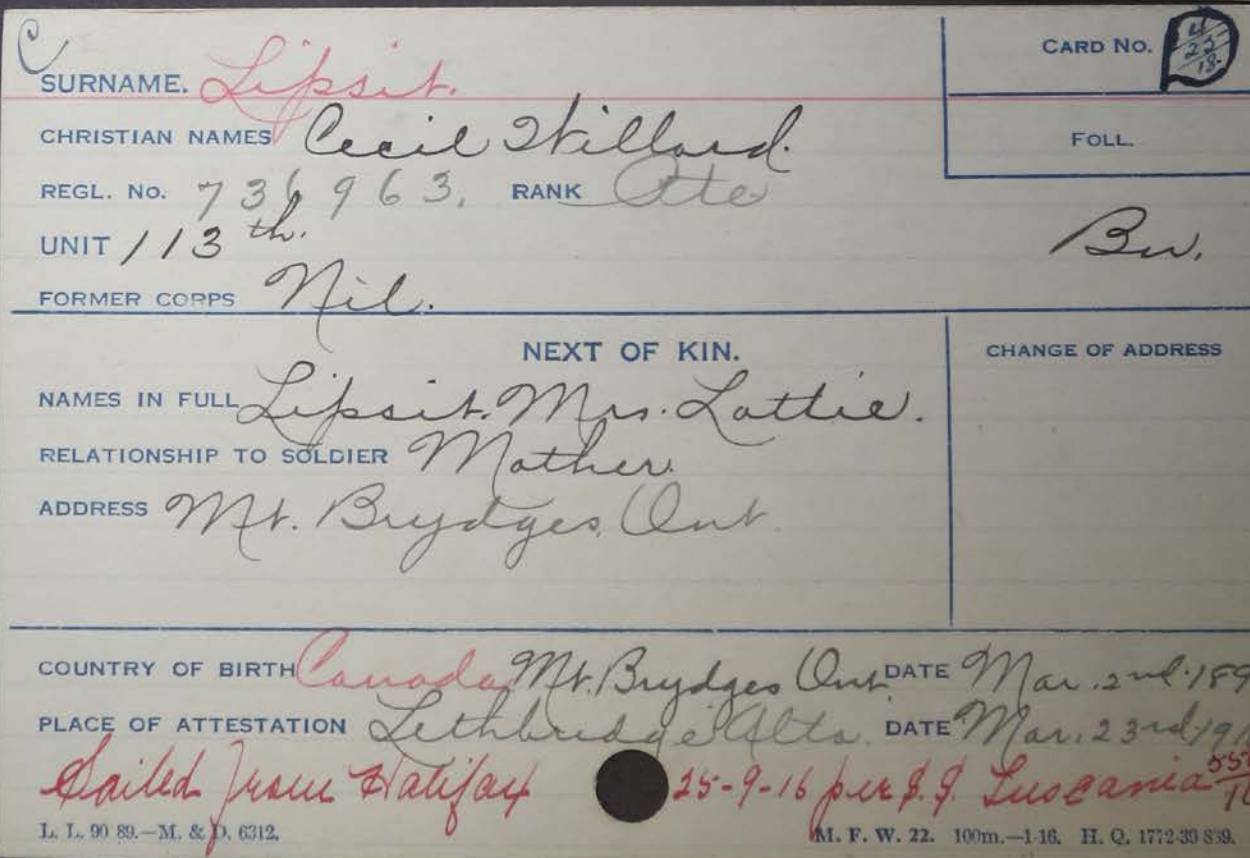 C
SURNAME. Lipsit.
CARD No. 4 22 18
CHRISTIAN NAMES Cecil Willard.
FOLL.
REGL. No. 736963, RANK Pte
UNIT 113th. Bn.
FORMER CORPS Nil.
NEXT OF KIN.
CHANGE OF ADDRESS
NAMES IN FULL Lipsit. Mrs. Lottie.
RELATIONSHIP TO SOLDIER Mother.
ADDRESS Mt. Brydges, Ont.
COUNTRY OF BIRTH Canada Mt. Brydges Ont. DATE Mar. 2nd. 189
PLACE OF ATTESTATION Lethbridge Alta. DATE Mar. 23rd 191
Sailed from Halifax 25-9-16 per S.S. Tuscania
L. L. 90 89.—M. & D. 6312.
M. F. W. 22. 100m.—1-16. H. Q. 1772-39 839.